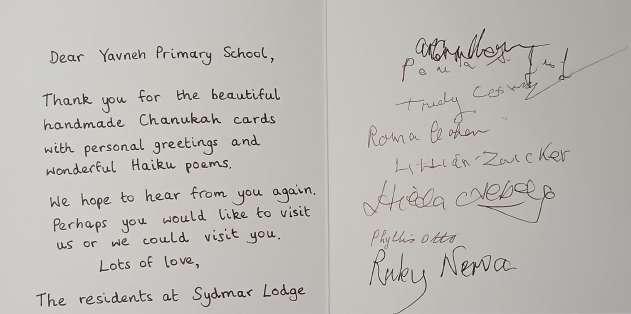 Dear Yavneh Primary School,
Thank you for the beautiful
handmade Chanukah cards
with personal greetings and
wonderful Haiku poems.
We hope to hear from you again.
Perhaps you would like to visit
us or we could visit you.
Lots of love,
The residents at Sydmar Lodge
Trudy
Roma
Lillian Zaucker
Hilda
Phyllis Otto
Ruby Nerva